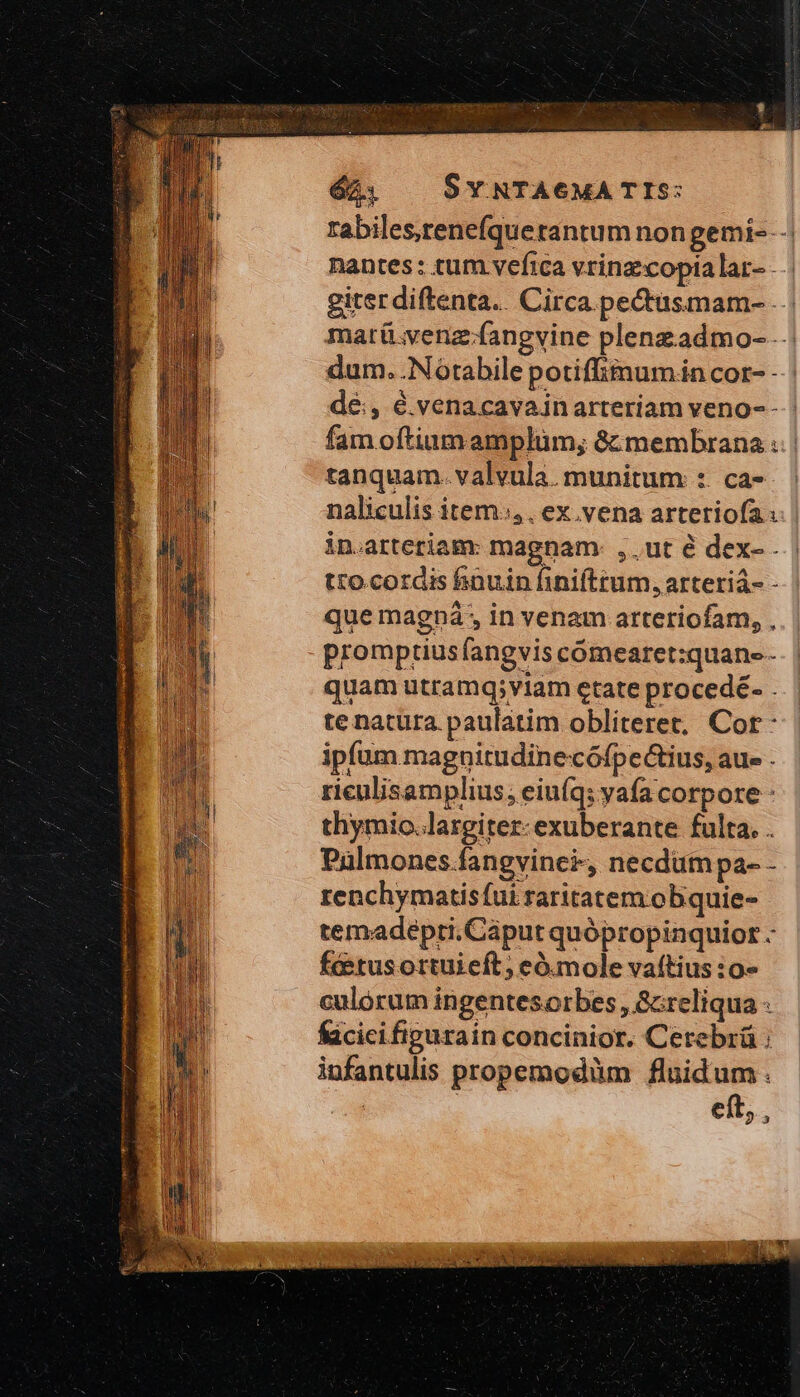 64 SYNTAGMATIS
rabiles, renesque tantum non gemi-
nantes: tum vesica vrinæ copia lar-
giter distenta. Circa pectus mam-
marū venæ sangvine plenæ admo-
dum. Notabile potissimum in cor-
de, è vena cava in arteriam veno-
sam ostium amplum, & membrana
tanquam valvula munitum: ca-
naliculis item, ex vena arteriosa
in arteriam magnam, ut è dex-
tro cordis sinu in sinistrum, arteriâ-
que magnâ, in venam arteriosam,
promptius sangvis cōmearet: quan-
quam utramq; viam ętate procedē-
te natura paulatim obliteret. Cor
ipsum magnitudine cōspectius, au-
riculis amplius, eiusq; vasa corpore
thymio largiter exuberante fulta.
Pulmones sangvinei, necdum pa-
renchymatis sui raritatem ob quie-
tem adepti. Caput quò propinquior
fœtus ortui est, eò mole vastius: o-
culorum ingentes orbes, & reliqua
faciei figura in concinior. Cerebrū
infantulis propemodùm fluidum
est,